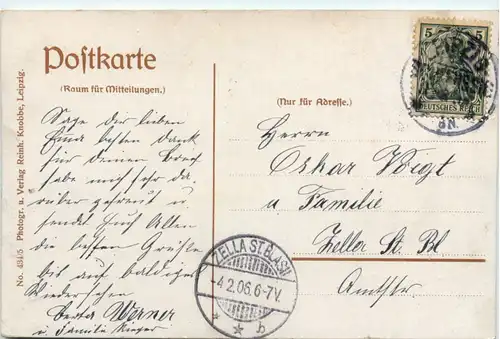 Postkarte
(Raum für Mitteilungen.)
(Nur für Adresse.)
No. 434/5 Photogr. u. Verlag Reinh. Knobbe, Leipzig.
5 5
DEUTSCHES REICH
LEIPZIG
5N.
Sage der lieben
besten Dank
für Deinen Brief
habe mich sehr da-
rüber gefreut u.
sendet Euch Allen
die besten Grüße
bis auf baldiges
Wiedersehen
Berta Werner
u. Familie
Herrn
Oskar Voigt
u Familie
Zella St. Bl
Amtstr.
ZELLA ST. BLASII
-4.2.06.6-7V.
* * b